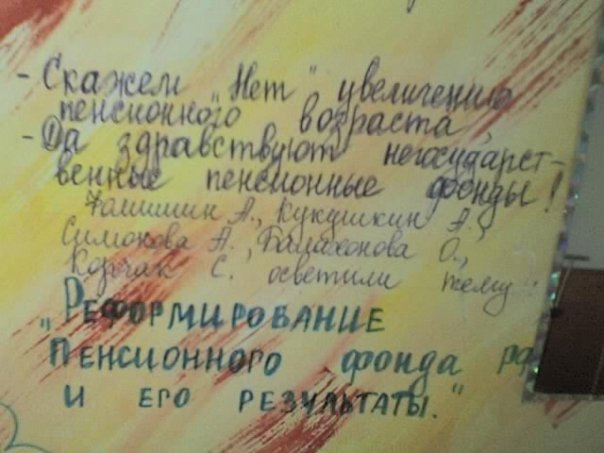 - Скажем "Нет" увеличению
пенсионного возраста,
- Да здравствуют негосударст-
венные пенсионные фонды!
А., Кукушкин А.,
Симонова А., Балахонова О.,
Корчак С. осветили тему:
"Реформирование
Пенсионного фонда РФ
и его результаты."